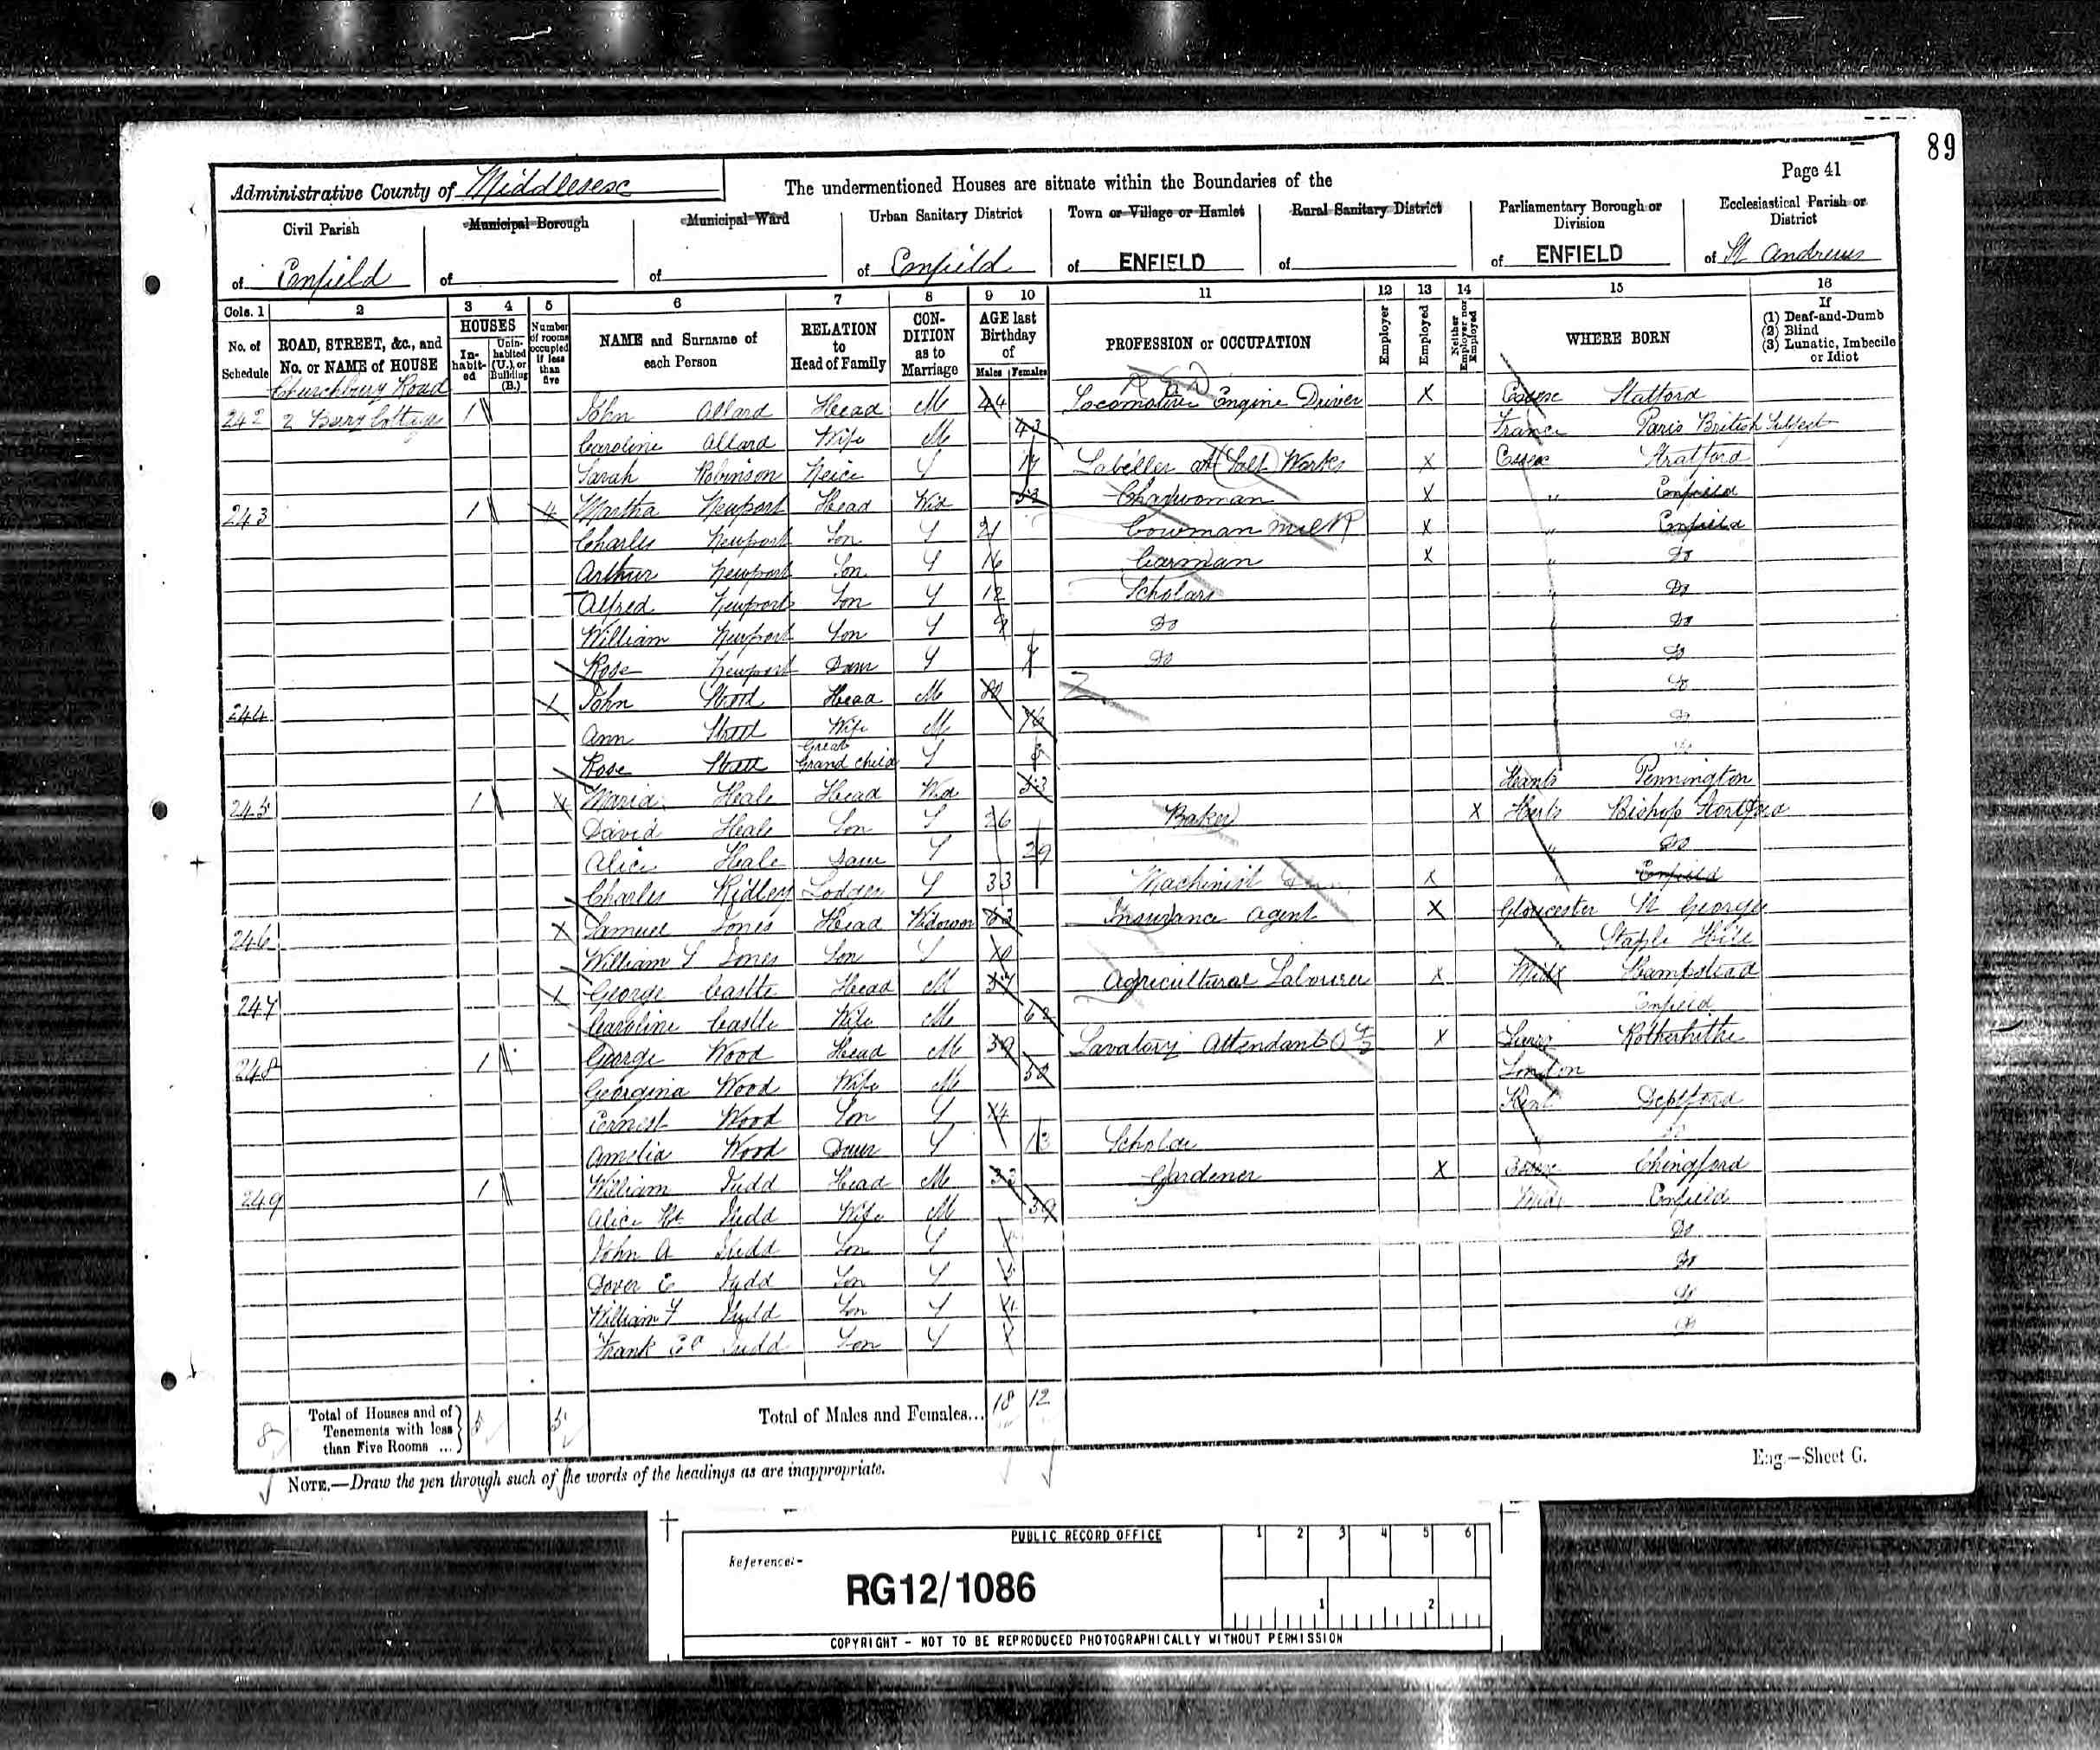 89
Page 41
Administrative County of Middlesex
The undermentioned Houses are situate within the Boundaries of the
Civil Parish
of Enfield
Municipal Borough
of
Municipal Ward
of
Urban Sanitary District
of Enfield
Town or Village or Hamlet
of ENFIELD
Rural Sanitary District
of
Parliamentary Borough or Division
of ENFIELD
Ecclesiastical Parish or District
of St Andrews
Cols. 1 2 3 4 5 6 7 8 9 10 11 12 13 14 15 16
No. of Schedule
ROAD, STREET, &c., and No. or NAME of HOUSE
HOUSES
In-habit-ed
Unin-habited (U.), or Building (B.)
Number of rooms occupied if less than five
NAME and Surname of each Person
RELATION to Head of Family
CON-DITION as to Marriage
AGE last Birthday of
Males Females
PROFESSION or OCCUPATION
Employer
Employed
Neither Employer nor Employed
WHERE BORN
If
(1) Deaf-and-Dumb
(2) Blind
(3) Lunatic, Imbecile or Idiot
Churchbury Road
242 2 Bury Cottage 1 John Allard Head M 44 Locomotive Engine Driver X Essex Statford
Caroline Allard Wife M 43 France Paris British Subject
Sarah Robinson Neice S 17 Labeller at Works X Essex Stratford
243 1 4 Martha Newport Head Wid 52 Charwoman X " Enfield
Charles Newport Son S 21 Cowman milk X " Enfield
Arthur Newport Son S 16 Carman X " Do
Alfred Newport Son S 12 Scholars " Do
William Newport Son S Do " Do
Rose Newport Daur S 7 Do Do
244 John Head M 80 Do
Ann Wife M 76 Do
Rose Great Grand child S Do
245 1 4 Maria Heale Head Wid 53 Hants Pennington
David Heale Son S 26 Baker X Herts Bishop Stortford
Alice Heale Daur S 29 " Do
Charles Ridley Lodger S 33 Machinist X " Enfield
246 Samuel Jones Head Widower 63 Insurance Agent X Gloucester St George
William S Jones Son S Staple Hill
247 George Castle Head M 57 Agricultural Labourer X Midx Hampstead
Caroline Castle Wife M 62 Enfield
248 1 George Wood Head M 39 Lavatory Attendant X Surrey Rotherhithe
Georgina Wood Wife M 50 London
Ernest Wood Son S 14 Kent Deptford
Amelia Wood Daur S 13 Scholar Do
249 1 William Judd Head M 33 Gardener X Essex Chingford
Alice Judd Wife M 39 Midx Enfield
John A Judd Son S Do
E Judd Son S 5 Do
William F Judd Son S 4 Do
Frank Judd Son S Do
8 Total of Houses and of Tenements with less than Five Rooms ... 5 5 Total of Males and Females... 18 12
NOTE.—Draw the pen through such of the words of the headings as are inappropriate.
Eng.—Sheet G.
PUBLIC RECORD OFFICE
1 2 3 4 5 6
Reference:-
RG12/1086
1 2
COPYRIGHT - NOT TO BE REPRODUCED PHOTOGRAPHICALLY WITHOUT PERMISSION